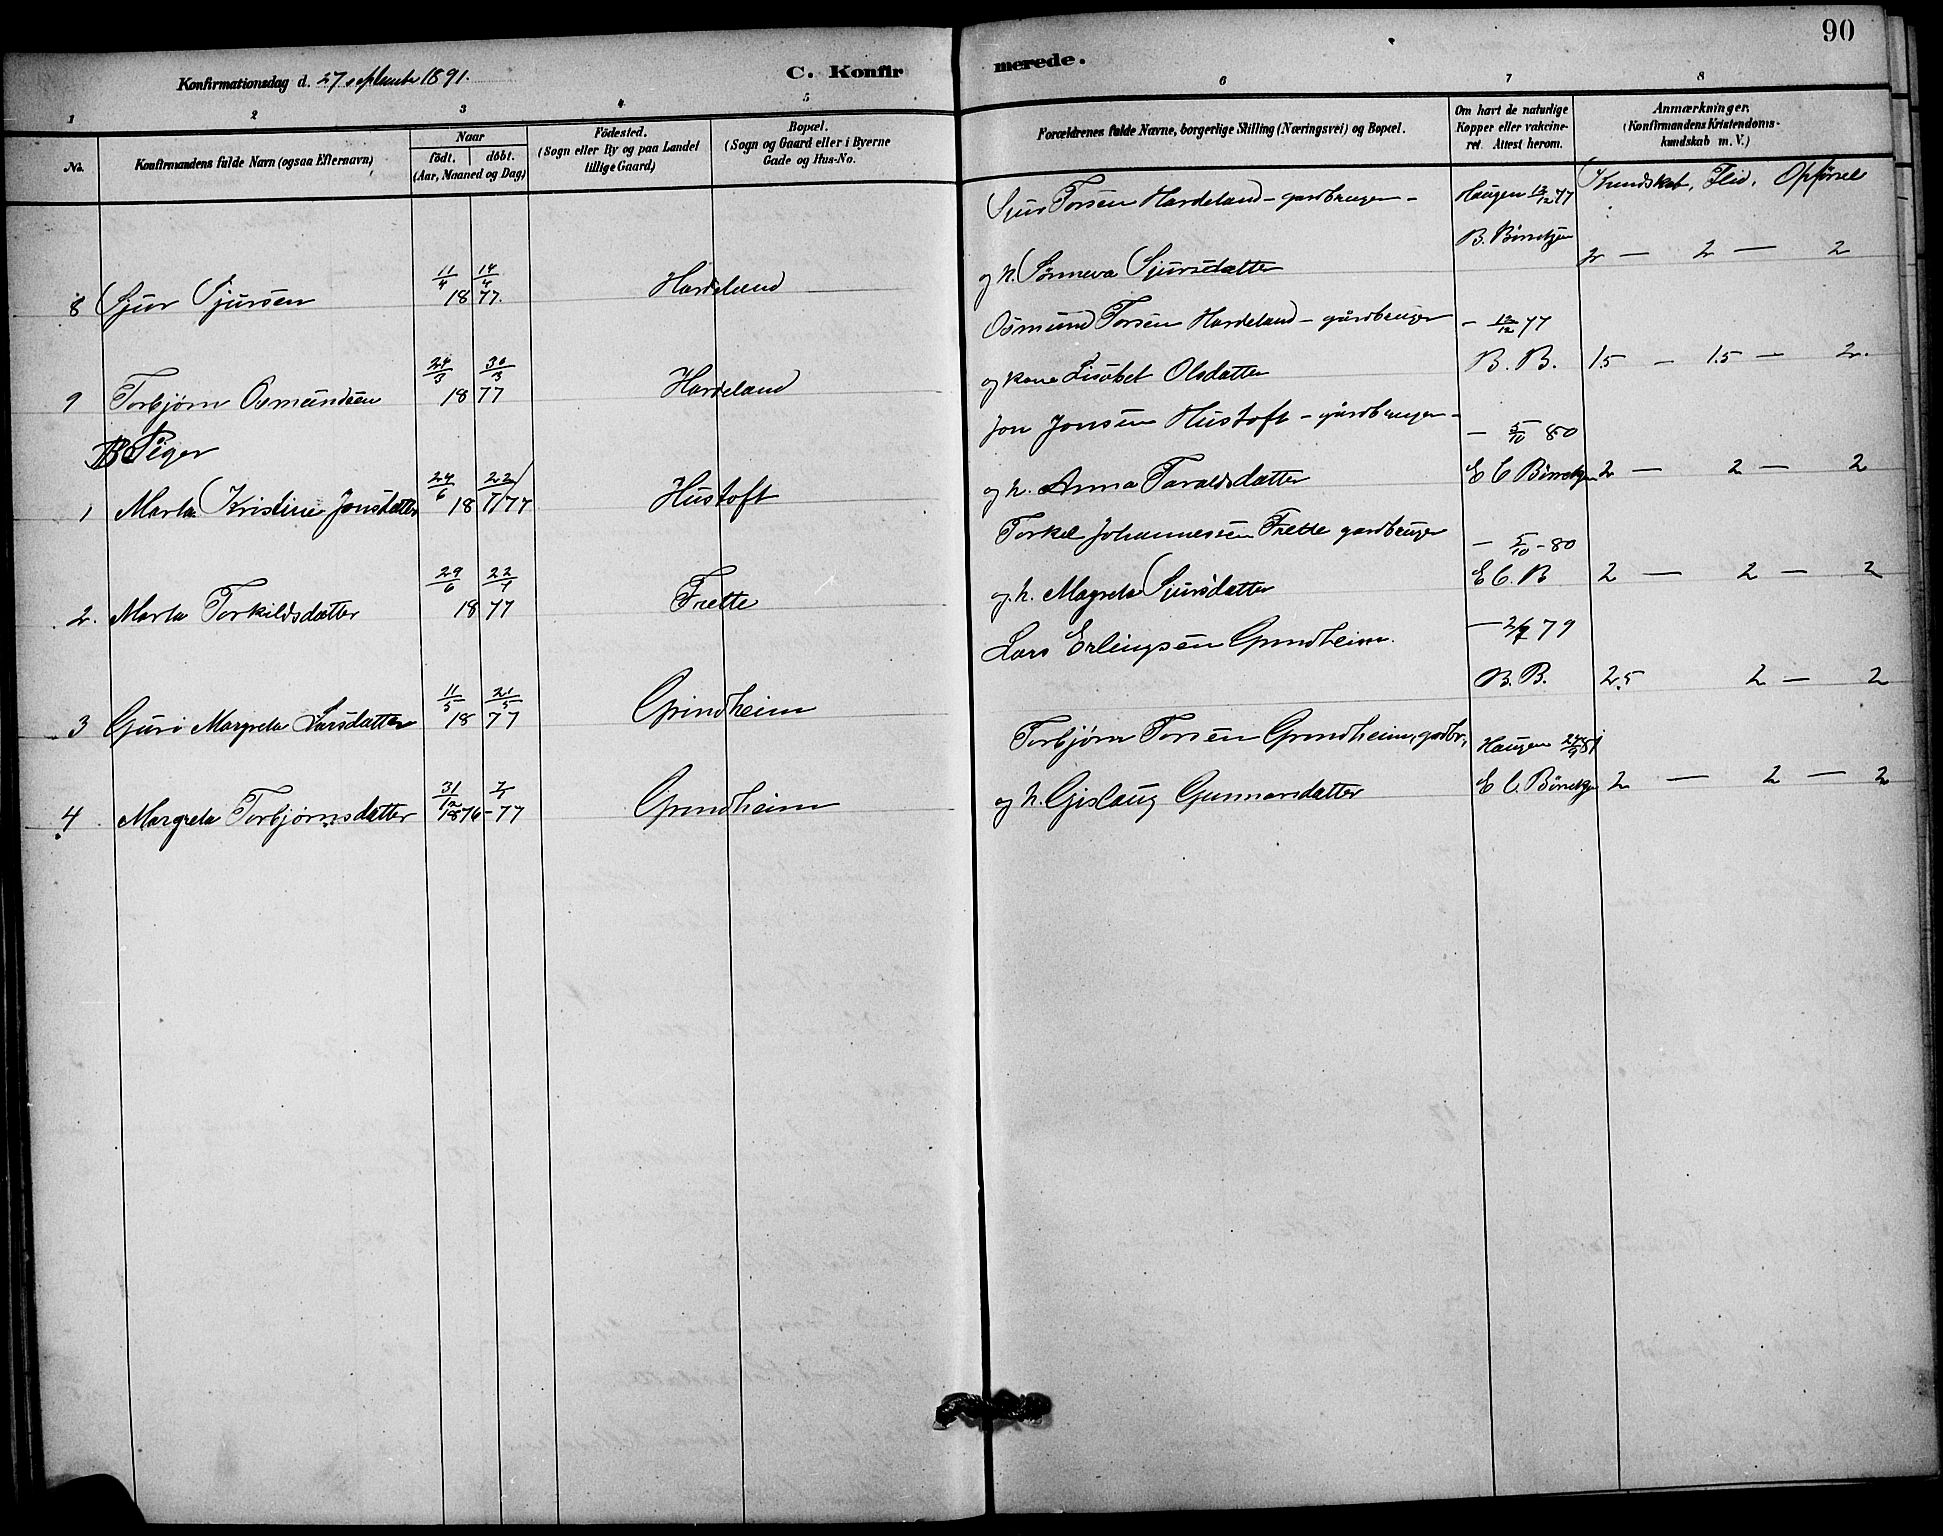 90
Konfirmationsdag d. 27 septembr 1891.
C. Konfirmerede.
1 2 3 4 5 6 7 8
No.
Konfirmandens fulde Navn (ogsaa Efternavn)
Naar
födt. döbt.
(Aar, Maaned og Dag)
Födested.
(Sogn eller By og paa Landet
tillige Gaard)
Bopæl.
(Sogn og Gaard eller i Byerne
Gade og Hus-No.
Forældrenes fulde Navne, borgerlige Stilling (Næringsvei) og Bopæl.
Om havt de naturlige
Kopper eller vakcine-
ret. Attest herom.
Anmærkninger.
(Konfirmandens Kristendoms-
kundskab m. V.)
Kundskab, Flid, Opførsel
8 Sjur Sjursen 11/4 14/4 1877. Hardeland
Sjur Torsen Hardeland - gardbruger -
og h. Sønneva Sjursdatter
Haugen 13/12 77
B. Børretzen
2 — 2 — 2
9 Torbjørn Osmundsen 24/3 30/3 1877 Hardeland
Osmund Torsen Hardeland - gårdbruger
og kone Lisabet Olsdatter
- 13/12 77
B. B.
1.5 — 1.5 — 2.
B Piger
1 Marta Kristine Jonsdatter 24/6 22/7 1877 Hustoft
Jon Jonsen Hustoft - gårdbruger -
og h. Anna Taraldsdatter
- 5/10 80
E C Børretzen
2 — 2 — 2
2. Marta Torkildsdatter 29/6 22/7 1877 Frette
Torkel Johannessen Frette gardbruger
og h. Magreta Sjursdatter
- 5/10 - 80
E C. B
2 — 2 — 2
3 Guri Margreta Larsdatter 11/5 21/5 1877 Grindheim
Lars Erlingsen Grindheim.
79
B. B.
2.5 2 — 2
4 Margreta Torbjørnsdatter 31/12 1876 - 77 Grindheim
Torbjørn Torsen Grindheim, gardbr,
og h. Gislaug Gunnarsdatter
Haugen 24/9 81
E C. Børretzen
2 — 2 — 2